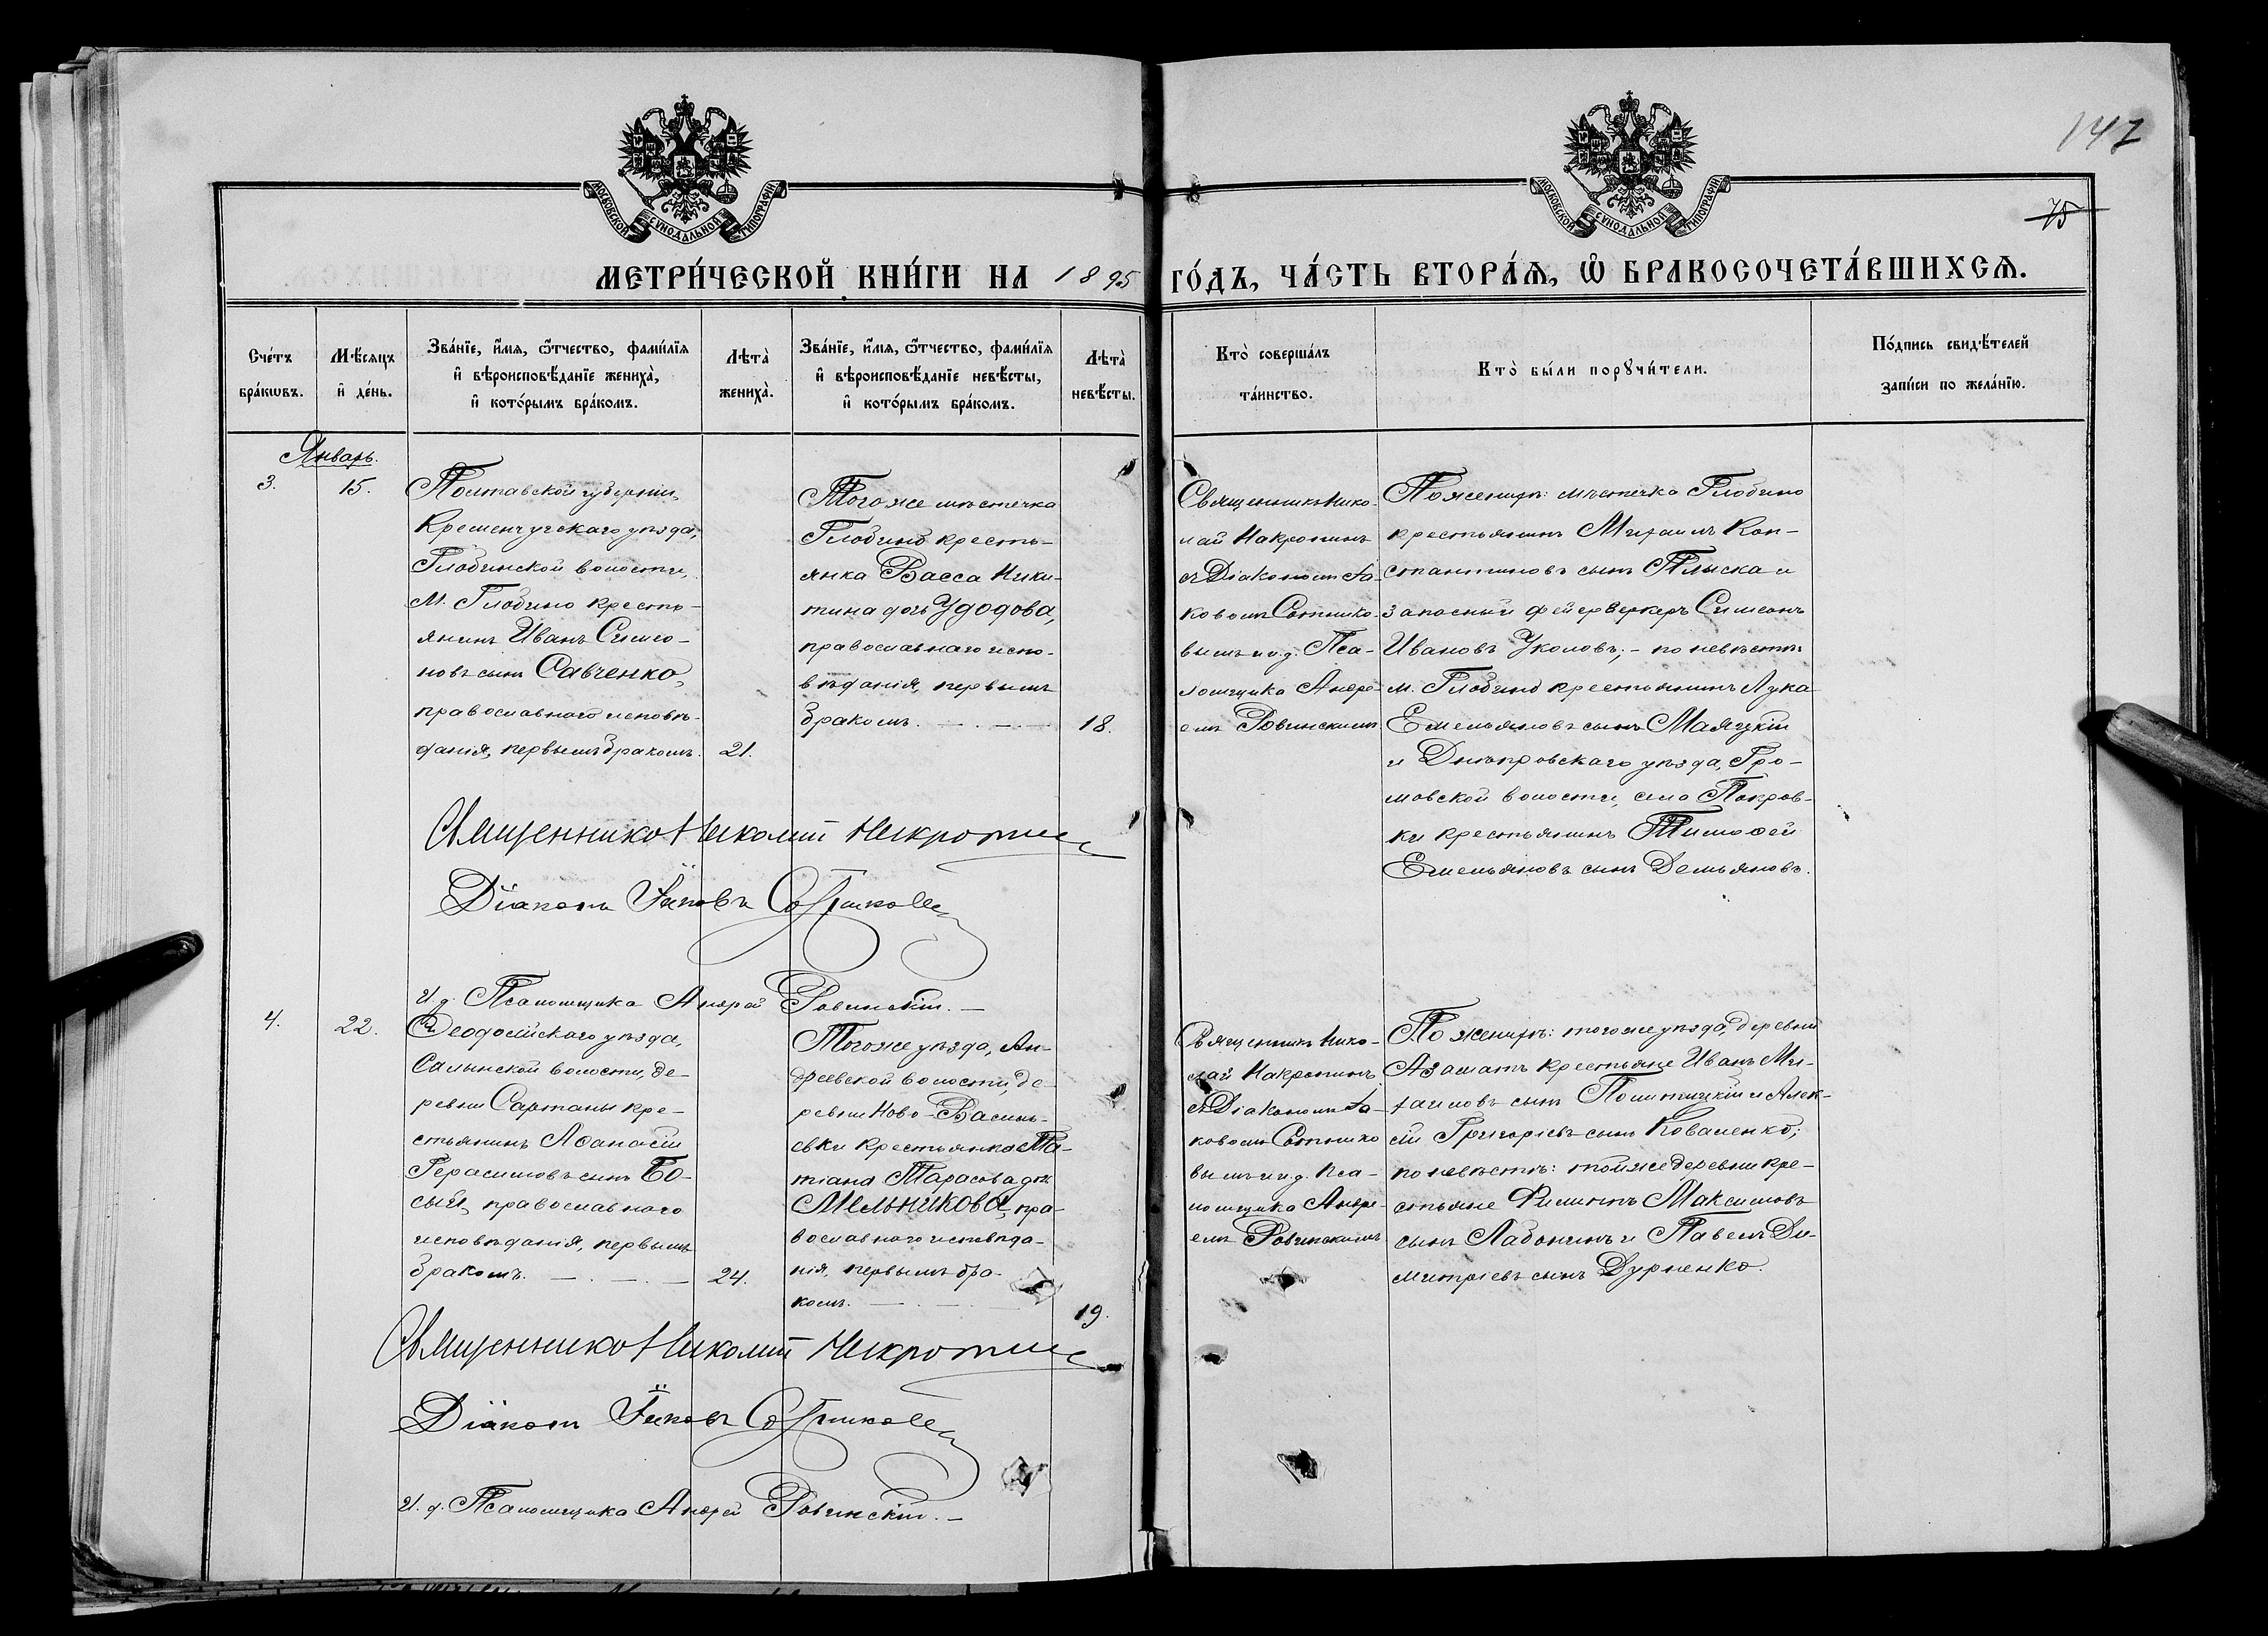 147
75
МОСКОВСКОЙ СѴНОДАЛЬНОЙ ТИПОГРАФІИ
МОСКОВСКОЙ СѴНОДАЛЬНОЙ ТИПОГРАФІИ
МЕТРИ́ЧЕСКОЙ КНИ́ГИ НА 1895 ГО́ДЪ, ЧА́СТЬ ВТОРА́Я, Ѡ БРАКОСОЧЕТА́ВШИХСЯ.
Сче́тъ
бра́кωвъ.
Мѣ́сяцъ
и де́нь.
Зва́нїе, и́мя, ѻ́тчество, фами́лїя
и вѣроисповѣ́данїе жениха̀,
и кото́рымъ бра́комъ.
Лѣта̀
жениха̀.
Зва́нїе, и́мя, ѻ́тчество, фами́лїя
и вѣроисповѣ́данїе невѣ́сты,
и кото́рымъ бра́комъ.
Лѣта̀
невѣ́сты.
Кто̀ соверша́лъ
та́инство.
Кто̀ бы́ли порꙋчи́тели.
По́дпись свидѣ́телей
запи́си по жела́нїю.
Январь.
3.
15.
Полтавской губерніи,
Кременчугскаго уѣзда,
Глобинской волости,
М. Глобино кресть-
янинъ Иванъ Симо-
новъ сынъ Савченко,
православнаго исповѣ-
данія, первымъ бракомъ.
21.
Тогоже мѣстечка
Глобино кресть-
янка Васса Ники-
тина дочь Удодова,
православнаго испо-
вѣданія, первымъ
бракомъ.
18.
Священникъ Нико-
лай Накропинъ
съ Діакономъ Іа-
ковомъ Сотнико-
вымъ и и. д. Пса-
ломщика Андре-
емъ Ровинскимъ.
По женихѣ: мѣстечка Глобино
крестьянинъ Михаилъ Кон-
стантиновъ сынъ Плыска и
запасный фейерверкеръ Симеонъ
Ивановъ Уколовъ; - по невѣстѣ:
м. Глобино крестьянинъ Лука
Емельяновъ сынъ Маяцкій
и Днѣпровскаго уѣзда, Гро-
мовской волости, село Покров-
ки крестьянинъ Тимофей
Емельяновъ сынъ Демьяновъ.
Священникъ Николай Накропинъ
Діаконъ Іаковъ Сотниковъ
И. д. Псаломщика Андрей Ровинскій. -
4.
22.
Феодосійскаго уѣзда,
Салынской волости, де-
ревни Сартаны кре-
стьянинъ Аѳанасій
Герасимовъ сынъ Бо-
сый, православнаго
исповѣданія, первымъ
бракомъ.
24.
Тогоже уѣзда, Ан-
дреевской волости, де-
ревни Ново-Василь-
евки крестьянка Та-
тіана Тарасова дочь
Мельникова, пра-
вославнаго исповѣда-
нія, первымъ бра-
комъ.
19.
Священникъ Нико-
лай Накропинъ
съ Діакономъ Іа-
ковомъ Сотнико
вымъ и и. д. Пса-
ломщика Андре-
емъ Ровинскимъ
По женихѣ: тогоже уѣзда, деревни
Азаматъ крестьяне Иванъ Ми-
хаиловъ сынъ Политицкій и Алек-
сій Григорьевъ сынъ Коваленко;
по невѣстѣ: тойже деревни кре-
стьяне Филиппъ Максимовъ
сынъ Ладонинъ и Павелъ Ди-
митріевъ сынъ Дурненко.
Священникъ Николай Накропинъ
Діаконъ Іаковъ Сотниковъ
И. д. Псаломщика Андрей Ровинскій. -